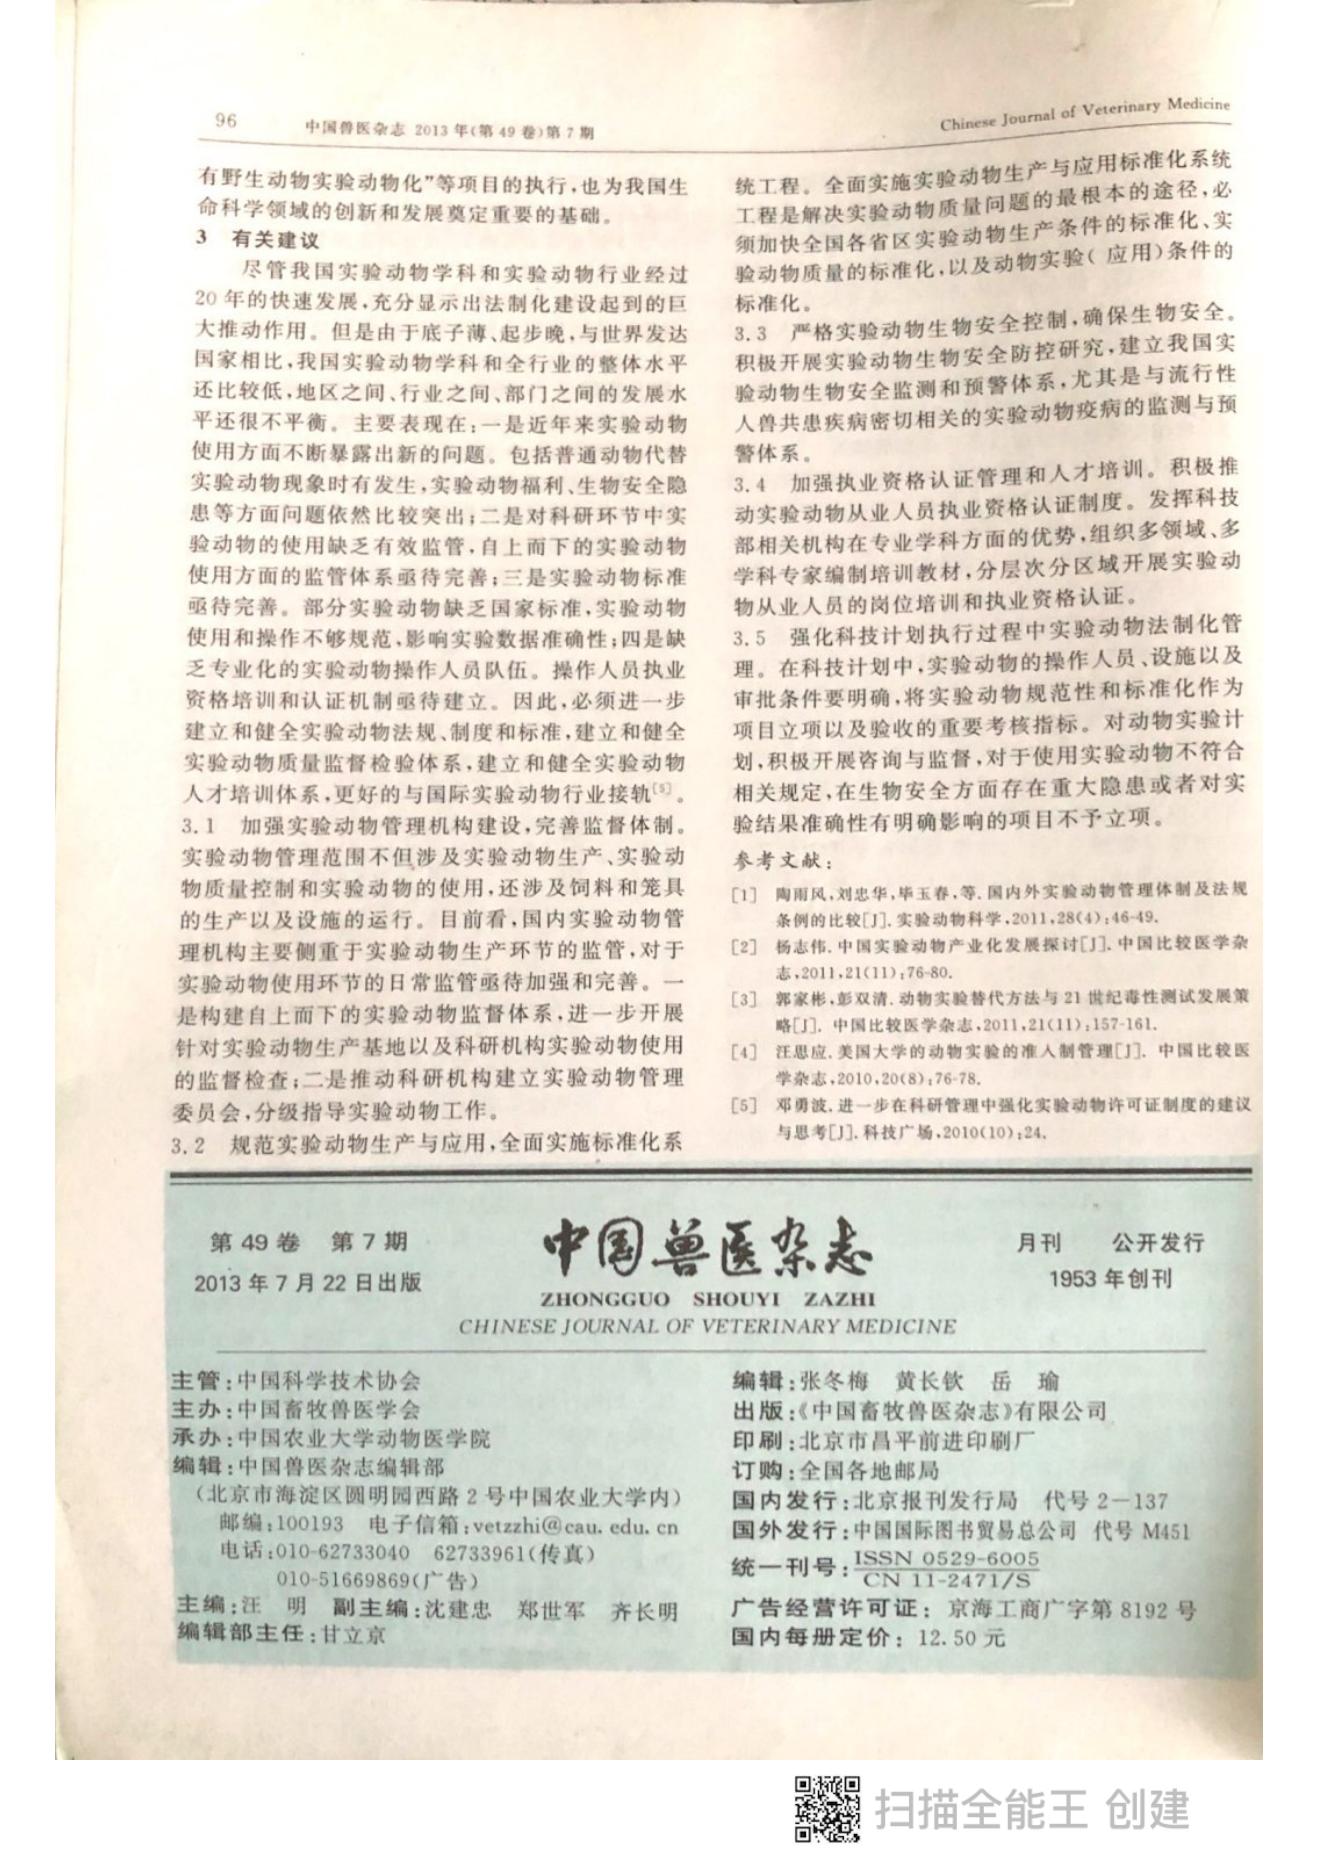 96
中国兽医杂志 2013 年(第 49 卷)第 7 期
Chinese Journal of Veterinary Medicine
有野生动物实验动物化”等项目的执行,也为我国生
命科学领域的创新和发展奠定重要的基础。
3 有关建议
尽管我国实验动物学科和实验动物行业经过
20 年的快速发展,充分显示出法制化建设起到的巨
大推动作用。但是由于底子薄、起步晚,与世界发达
国家相比,我国实验动物学科和全行业的整体水平
还比较低,地区之间、行业之间、部门之间的发展水
平还很不平衡。主要表现在:一是近年来实验动物
使用方面不断暴露出新的问题。包括普通动物代替
实验动物现象时有发生,实验动物福利、生物安全隐
患等方面问题依然比较突出;二是对科研环节中实
验动物的使用缺乏有效监管,自上而下的实验动物
使用方面的监管体系亟待完善;三是实验动物标准
亟待完善。部分实验动物缺乏国家标准,实验动物
使用和操作不够规范,影响实验数据准确性;四是缺
乏专业化的实验动物操作人员队伍。操作人员执业
资格培训和认证机制亟待建立。因此,必须进一步
建立和健全实验动物法规、制度和标准,建立和健全
实验动物质量监督检验体系,建立和健全实验动物
人才培训体系,更好的与国际实验动物行业接轨[5]。
3.1 加强实验动物管理机构建设,完善监督体制。
实验动物管理范围不但涉及实验动物生产、实验动
物质量控制和实验动物的使用,还涉及饲料和笼具
的生产以及设施的运行。目前看,国内实验动物管
理机构主要侧重于实验动物生产环节的监管,对于
实验动物使用环节的日常监管亟待加强和完善。一
是构建自上而下的实验动物监督体系,进一步开展
针对实验动物生产基地以及科研机构实验动物使用
的监督检查;二是推动科研机构建立实验动物管理
委员会,分级指导实验动物工作。
3.2 规范实验动物生产与应用,全面实施标准化系
统工程。全面实施实验动物生产与应用标准化系统
工程是解决实验动物质量问题的最根本的途径,必
须加快全国各省区实验动物生产条件的标准化、实
验动物质量的标准化,以及动物实验( 应用)条件的
标准化。
3.3 严格实验动物生物安全控制,确保生物安全。
积极开展实验动物生物安全防控研究,建立我国实
验动物生物安全监测和预警体系,尤其是与流行性
人兽共患疾病密切相关的实验动物疫病的监测与预
警体系。
3.4 加强执业资格认证管理和人才培训。积极推
动实验动物从业人员执业资格认证制度。发挥科技
部相关机构在专业学科方面的优势,组织多领域、多
学科专家编制培训教材,分层次分区域开展实验动
物从业人员的岗位培训和执业资格认证。
3.5 强化科技计划执行过程中实验动物法制化管
理。在科技计划中,实验动物的操作人员、设施以及
审批条件要明确,将实验动物规范性和标准化作为
项目立项以及验收的重要考核指标。对动物实验计
划,积极开展咨询与监督,对于使用实验动物不符合
相关规定,在生物安全方面存在重大隐患或者对实
验结果准确性有明确影响的项目不予立项。
参考文献:
[1] 陶雨风,刘忠华,毕玉春,等.国内外实验动物管理体制及法规
条例的比较[J].实验动物科学,2011,28(4):46-49.
[2] 杨志伟.中国实验动物产业化发展探讨[J].中国比较医学杂
志,2011,21(11):76-80.
[3] 郭家彬,彭双清.动物实验替代方法与 21 世纪毒性测试发展策
略[J]. 中国比较医学杂志,2011,21(11):157-161.
[4] 汪思应.美国大学的动物实验的准入制管理[J]. 中国比较医
学杂志,2010,20(8):76-78.
[5] 邓勇波.进一步在科研管理中强化实验动物许可证制度的建议
与思考[J].科技广场,2010(10):24.
第 49 卷 第 7 期
2013 年 7 月 22 日出版
中国兽医杂志
ZHONGGUO SHOUYI ZAZHI
CHINESE JOURNAL OF VETERINARY MEDICINE
月刊 公开发行
1953 年创刊
主管:中国科学技术协会
主办:中国畜牧兽医学会
承办:中国农业大学动物医学院
编辑:中国兽医杂志编辑部
(北京市海淀区圆明园西路 2 号中国农业大学内)
邮编:100193 电子信箱:vetzzhi@cau.edu.cn
电话:010-62733040 62733961(传真)
010-51669869(广告)
主编:汪 明 副主编:沈建忠 郑世军 齐长明
编辑部主任:甘立京
编辑:张冬梅 黄长钦 岳 瑜
出版:《中国畜牧兽医杂志》有限公司
印刷:北京市昌平前进印刷厂
订购:全国各地邮局
国内发行:北京报刊发行局 代号 2－137
国外发行:中国国际图书贸易总公司 代号 M451
统一刊号:ISSN 0529-6005
CN 11-2471/S
广告经营许可证: 京海工商广字第 8192 号
国内每册定价: 12.50 元
扫描全能王 创建